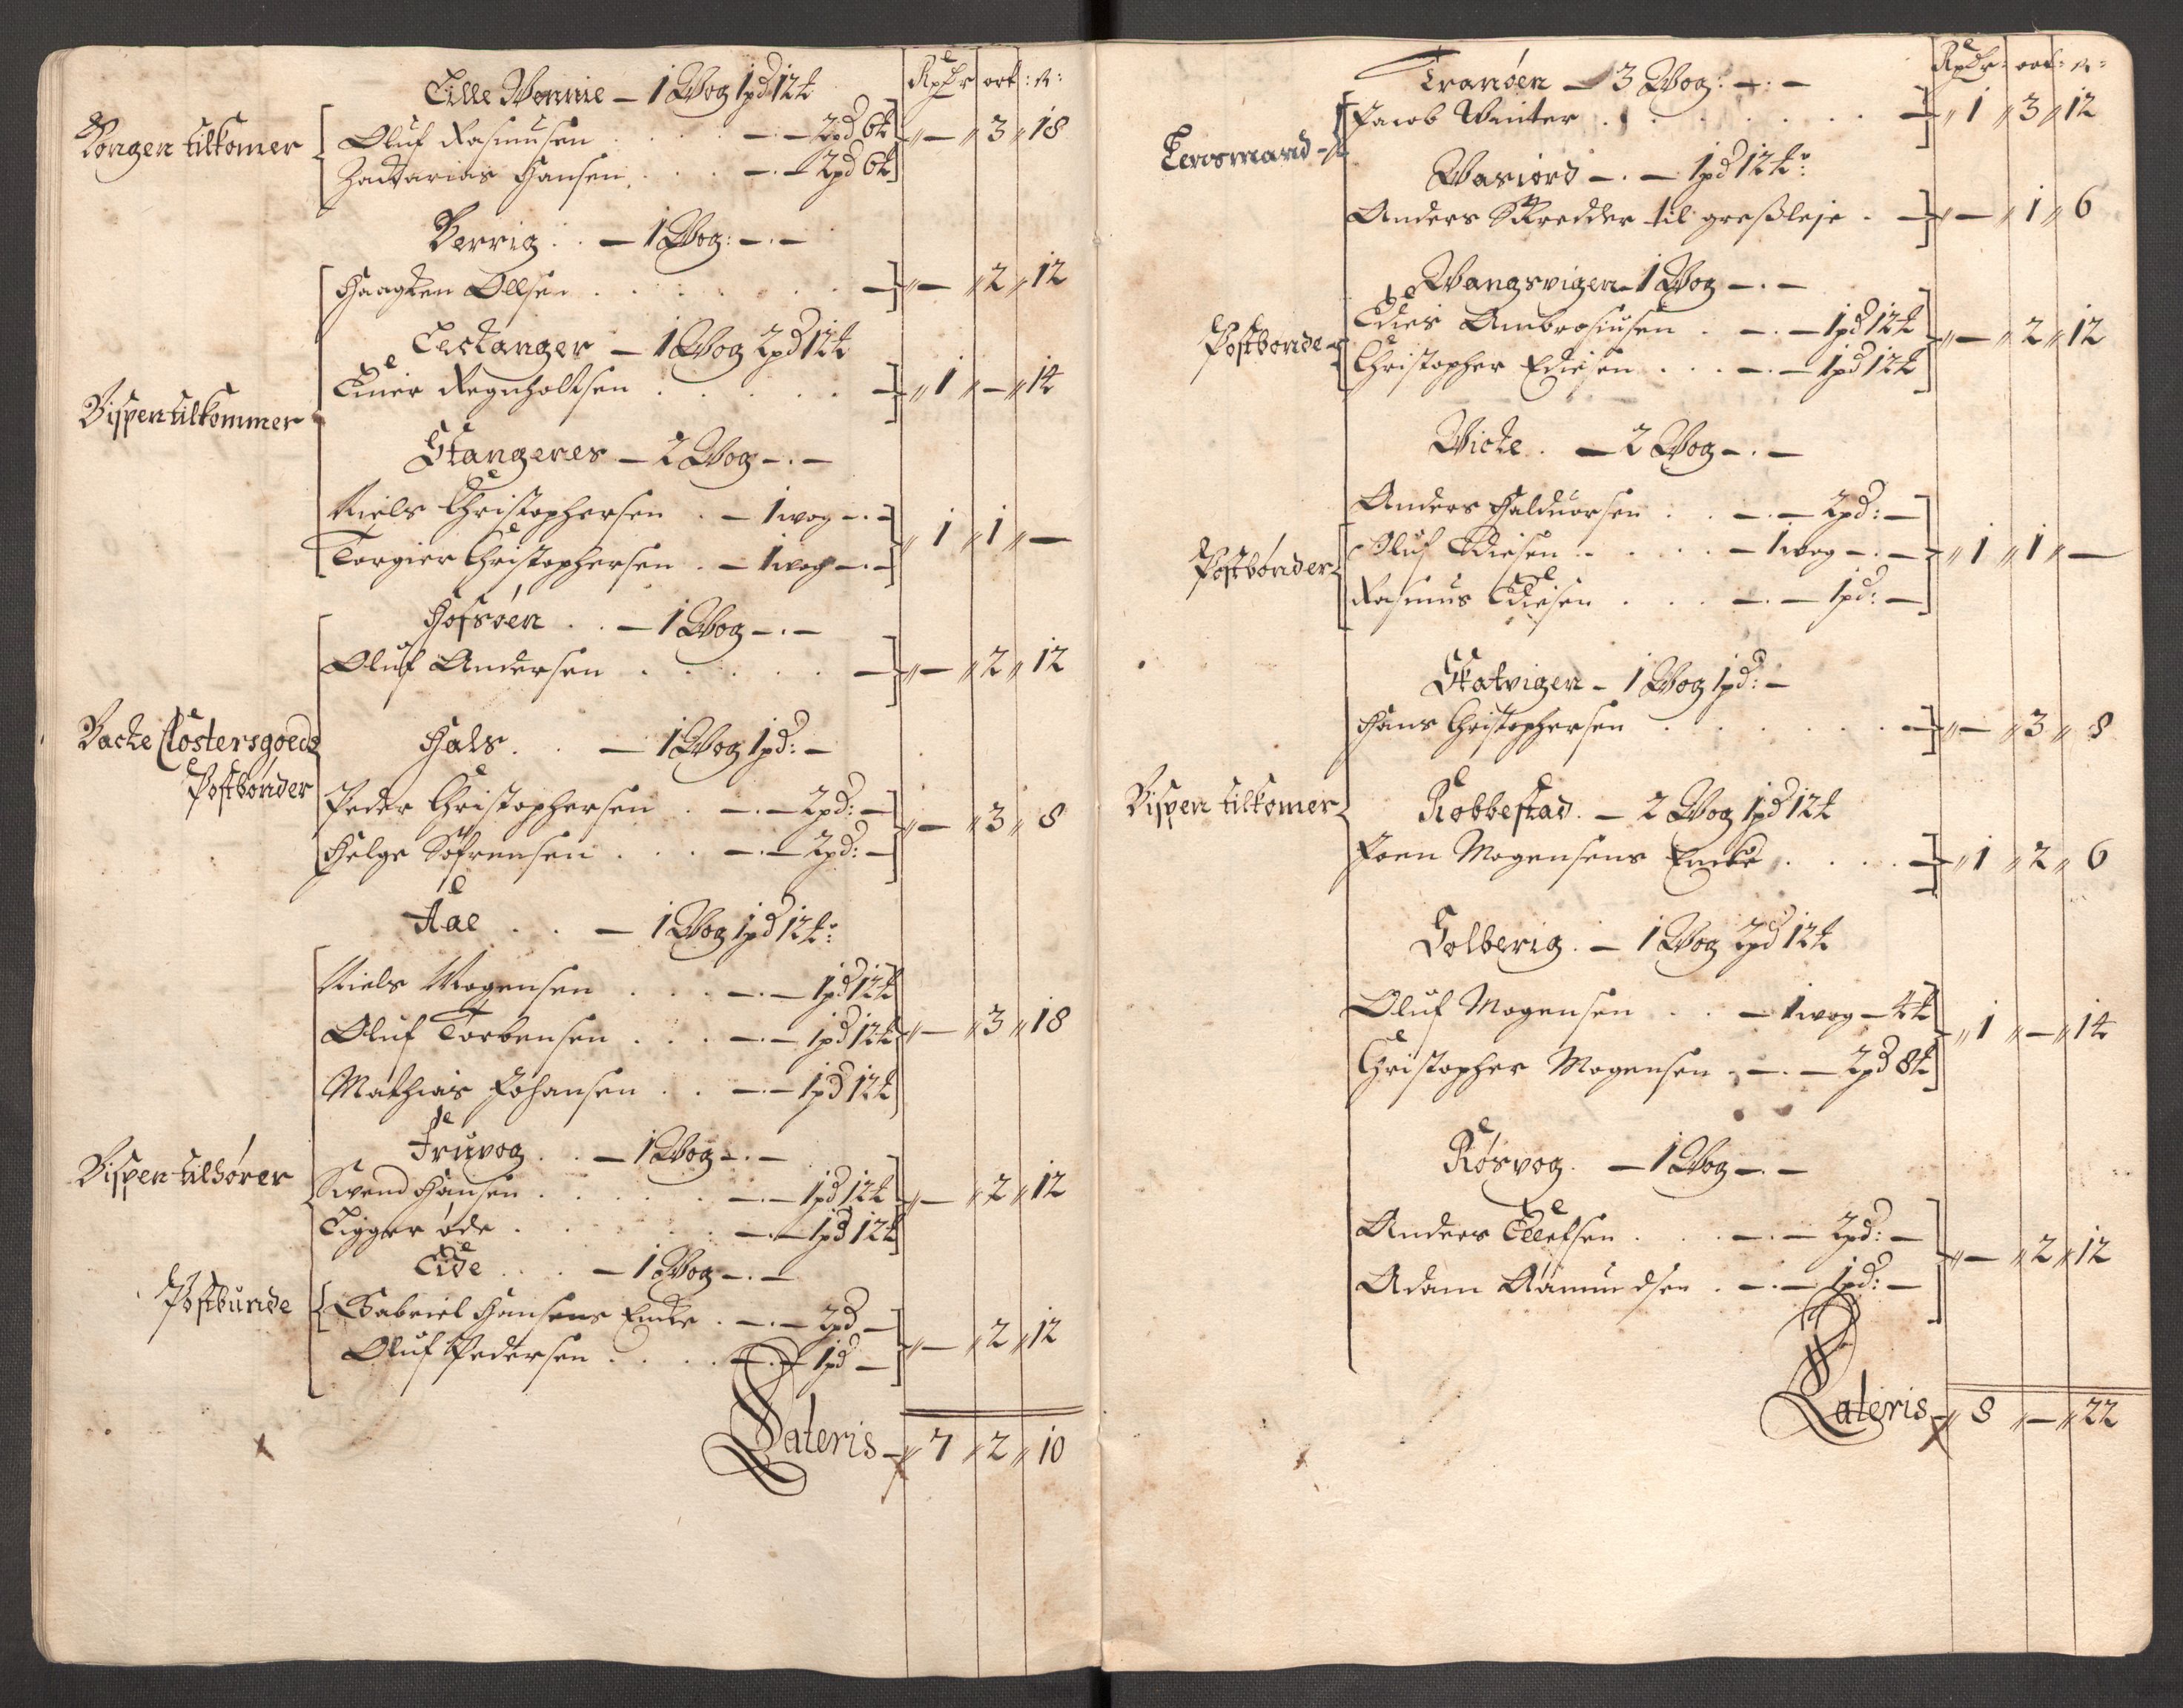 Rpdr ort : s:
Lille Wonnie – 1 Wog 1pd 12 ℔
Kongen tilkomer
Oluf Rasmusen . . . –.– 2pd 6℔ „ – „ 3 „ 18
Zacharias Hansen . . . –.– 2pd 6℔
Berrig . . – 1 Wog : –.–
Haagken Ollsen . . . . . – „ – „ 2 „ 12
Leetanger – 1 Wog 2pd 12℔
Einer Regnholtsen . . . . . – „ 1 „ – „ 14
Bispen tilkommer
Stangenes – 2 Wog –.–
Niels Christophersen . – 1 wog –.–
Torgier Christophersen . – 1 wog –.– „ 1 „ 1 „ –
Hofsøen . . – 1 Wog –.–
Oluf Andersen . . . . . – „ – „ 2 „ 12
Backe Clostersgoeds
Hals . . – 1 Wog 1pd : –
Postbønder
Peder Christophersen . –.– 2pd : –
Helge Søfrensen . . . –.– 2pd : – „ – „ 3 „ 8
Aae . . – 1 Wog 1pd 12℔:
Niels Mogensen . . . –.– 1pd 12℔
Oluf Torbensen . . . –.– 1pd 12℔ „ – „ 3 „ 18
Mathias Johansen . . –.– 1pd 12℔
Fruvog . . – 1 Wog –.–
Bispen tilhører
Svend Hansen . . . . –.– 1pd 12℔ „ – „ 2 „ 12
Ligger øde . . . . –.– 1pd 12℔
Eide . . . – 1 Wog –.–
Postbunde
Gabriel Hansens Encke . –.– 2pd –
Oluf Pedersen . . . . –.– 1pd – „ – „ 2 „ 12
Lateris – „ 7 „ 2 „ 10
Rpdr : ort : s :
Tranøen – 3 Wog : –.–
Jacob Winter . . . . . . . – „ 1 „ 3 „ 12
Lensmand –
Wasiord –.– 1pd 12℔:
Anders Skredder til greßleje . – „ – „ 1 „ 6
Wangsvigen – 1 Wog –.–
Postbonde –
Edies Ambrosiusen . –.– 1pd 12℔ „ – „ 2 „ 12
Christopher Ediesen . . . –.– 1pd 12℔
Wicke . – 2 Wog –.–
Anders Halduorsen . . –.– 2pd : –
Postbønder
Oluf Ediesen . . . . – 1 wog –.– „ 1 „ 1 „ –
Rasmus Ediesen . . . –.– 1pd : –
Skatvigen – 1 Wog 1pd : –
Hans Christophersen . . . . . . – „ – „ 3 „ 8
Bispen tilkomer
Robbestad . – 2 Wog 1pd 12℔
Joen Mogensens Encke . . . . – „ 1 „ 2 „ 6
Solberig . – 1 Wog 2pd 12℔
Oluf Mogensen . . – 1 wog – 4℔
Christopher Mogensen . –.– 2pd 8℔ „ 1 „ – „ 14
Røsvog . – 1 Wog –.–
Anders Ellefsen . . . –.– 2pd : –
Adam Aamundsen . –.– 1pd : – „ – „ 2 „ 12
Lateris – „ 8 „ – „ 22